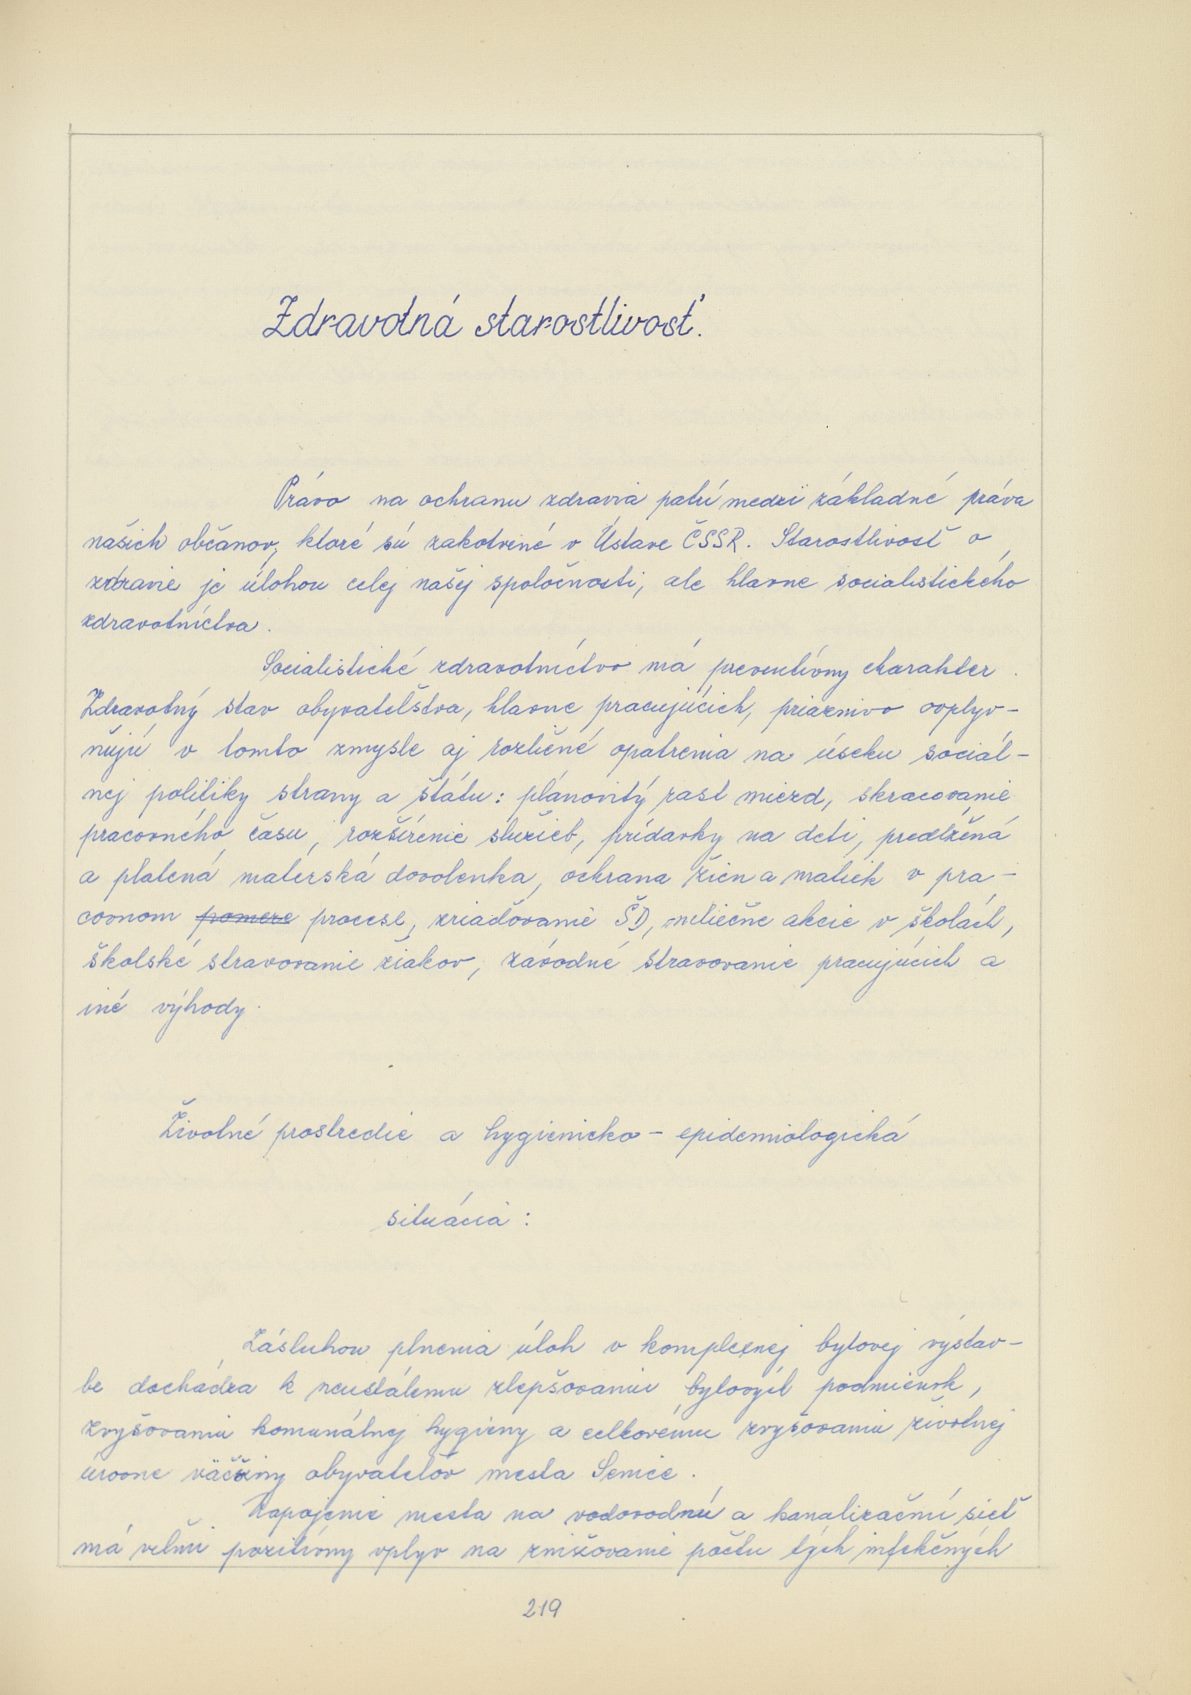 Zdravotná starostlivosť.
Právo na ochranu zdravia patrí medzi základné práva
našich občanov, ktoré sú zakotvené v Ústave ČSSR. Starostlivosť o
zdravie je úlohou celej našej spoločnosti, ale hlavne socialistického
zdravotníctva.
Socialistické zdravotníctvo má preventívny charakter.
Zdravotný stav obyvateľstva, hlavne pracujúcich, priaznivo ovplyv-
ňujú v tomto zmysle aj rozličné opatrenia na úseku sociál-
nej politiky strany a štátu: plánovitý rast miezd, skracovanie
pracovného času, rozšírenie služieb, prídavky na deti, predlžená
a platená materská dovolenka, ochrana žien a matiek v pra-
covnom pomere procese, zriaďovanie ŠD, mliečne akcie v školách,
školské stravovanie žiakov, závodné stravovanie pracujúcich a
iné výhody.
Životné prostredie a hygienicko-epidemiologická
situácia:
Zásluhou plnenia úloh v komplexnej bytovej výstav-
be dochádza k neustálemu zlepšovaniu bytových podmienok,
zvyšovaniu komunálnej hygieny a celkovému zvyšovaniu životnej
úrovne väčšiny obyvateľov mesta Senice.
Zapojenie mesta na vodovodnú a kanalizačnú sieť
má veľmi pozitívny vplyv na znižovanie počtu tých infekčných
219